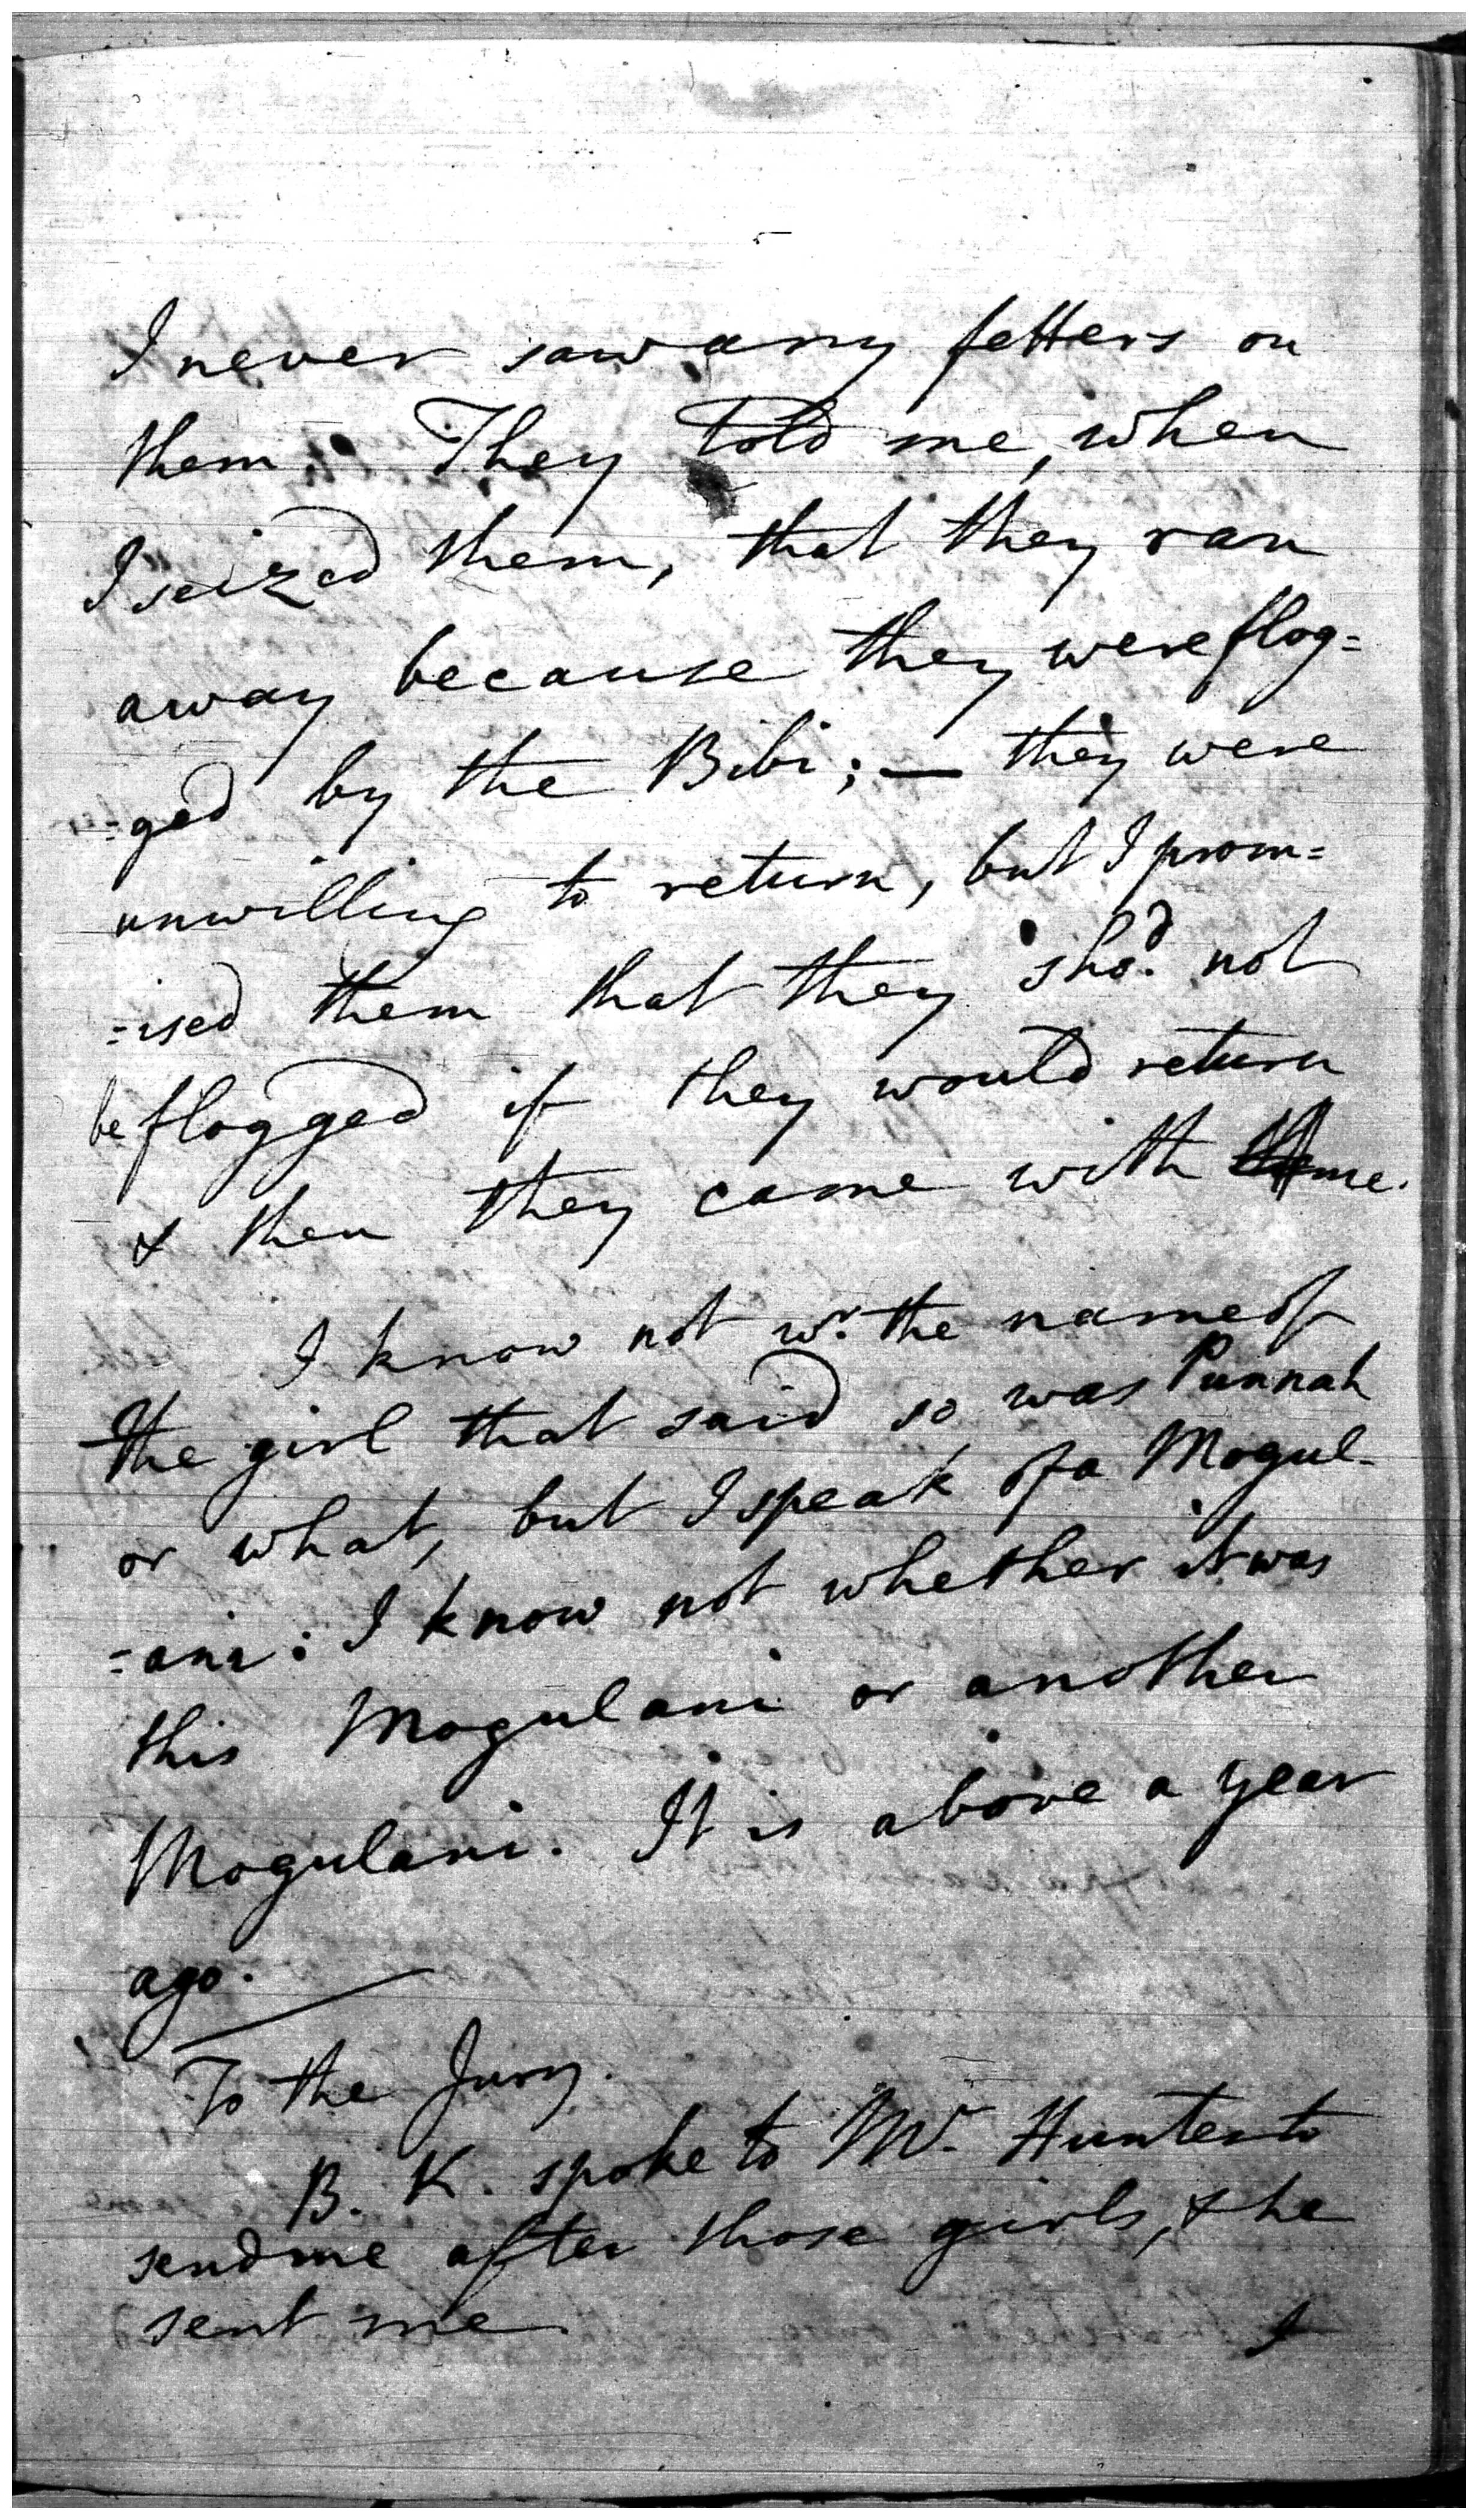 I never saw any fetters on
them. They told me, when
I seized them, that they ran
away because they were flog=
=ged by the Bibi; — they were
unwilling to return, but I prom=
=ised them that they sho.d not
be flogged if they would return
& then they came with me.
I know not w.r the name of
the girl that said so was Punnah
or what, but I speak of a Mogul-
=ani: I know not whether it was
this Mogulani or another
Mogulani. It is above a year
ago. —
To the Jury.
B. K. spoke to Mr. Hunter to
send me after those girls, & he
sent me
I